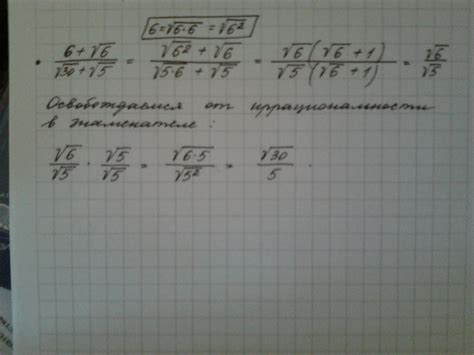 6=√6·6 = √6²
• (6+√6)/(√30+√5) = (√6² + √6)/(√5·6 + √5) = (√6(√6+1))/(√5(√6+1)) = √6/√5
Освобождаемся от иррациональности
в знаменателе:
√6/√5 · √5/√5 = √6·5/√5² = √30/5 .